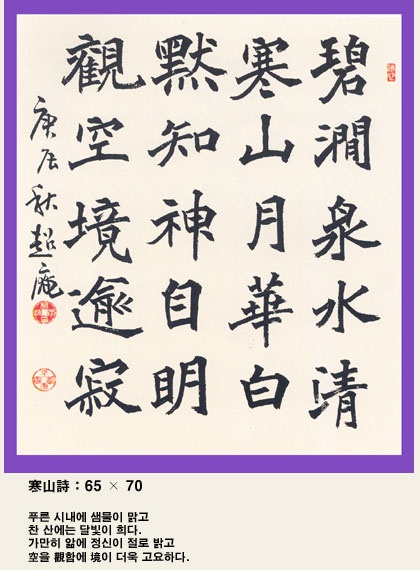 碧澗泉水清
寒山月華白
默知神自明
觀空境逾寂
庚辰秋超庵
寒山詩 : 65 × 70
푸른 시내에 샘물이 맑고
찬 산에는 달빛이 희다.
가만히 앎에 정신이 절로 밝고
空을 觀함에 境이 더욱 고요하다.